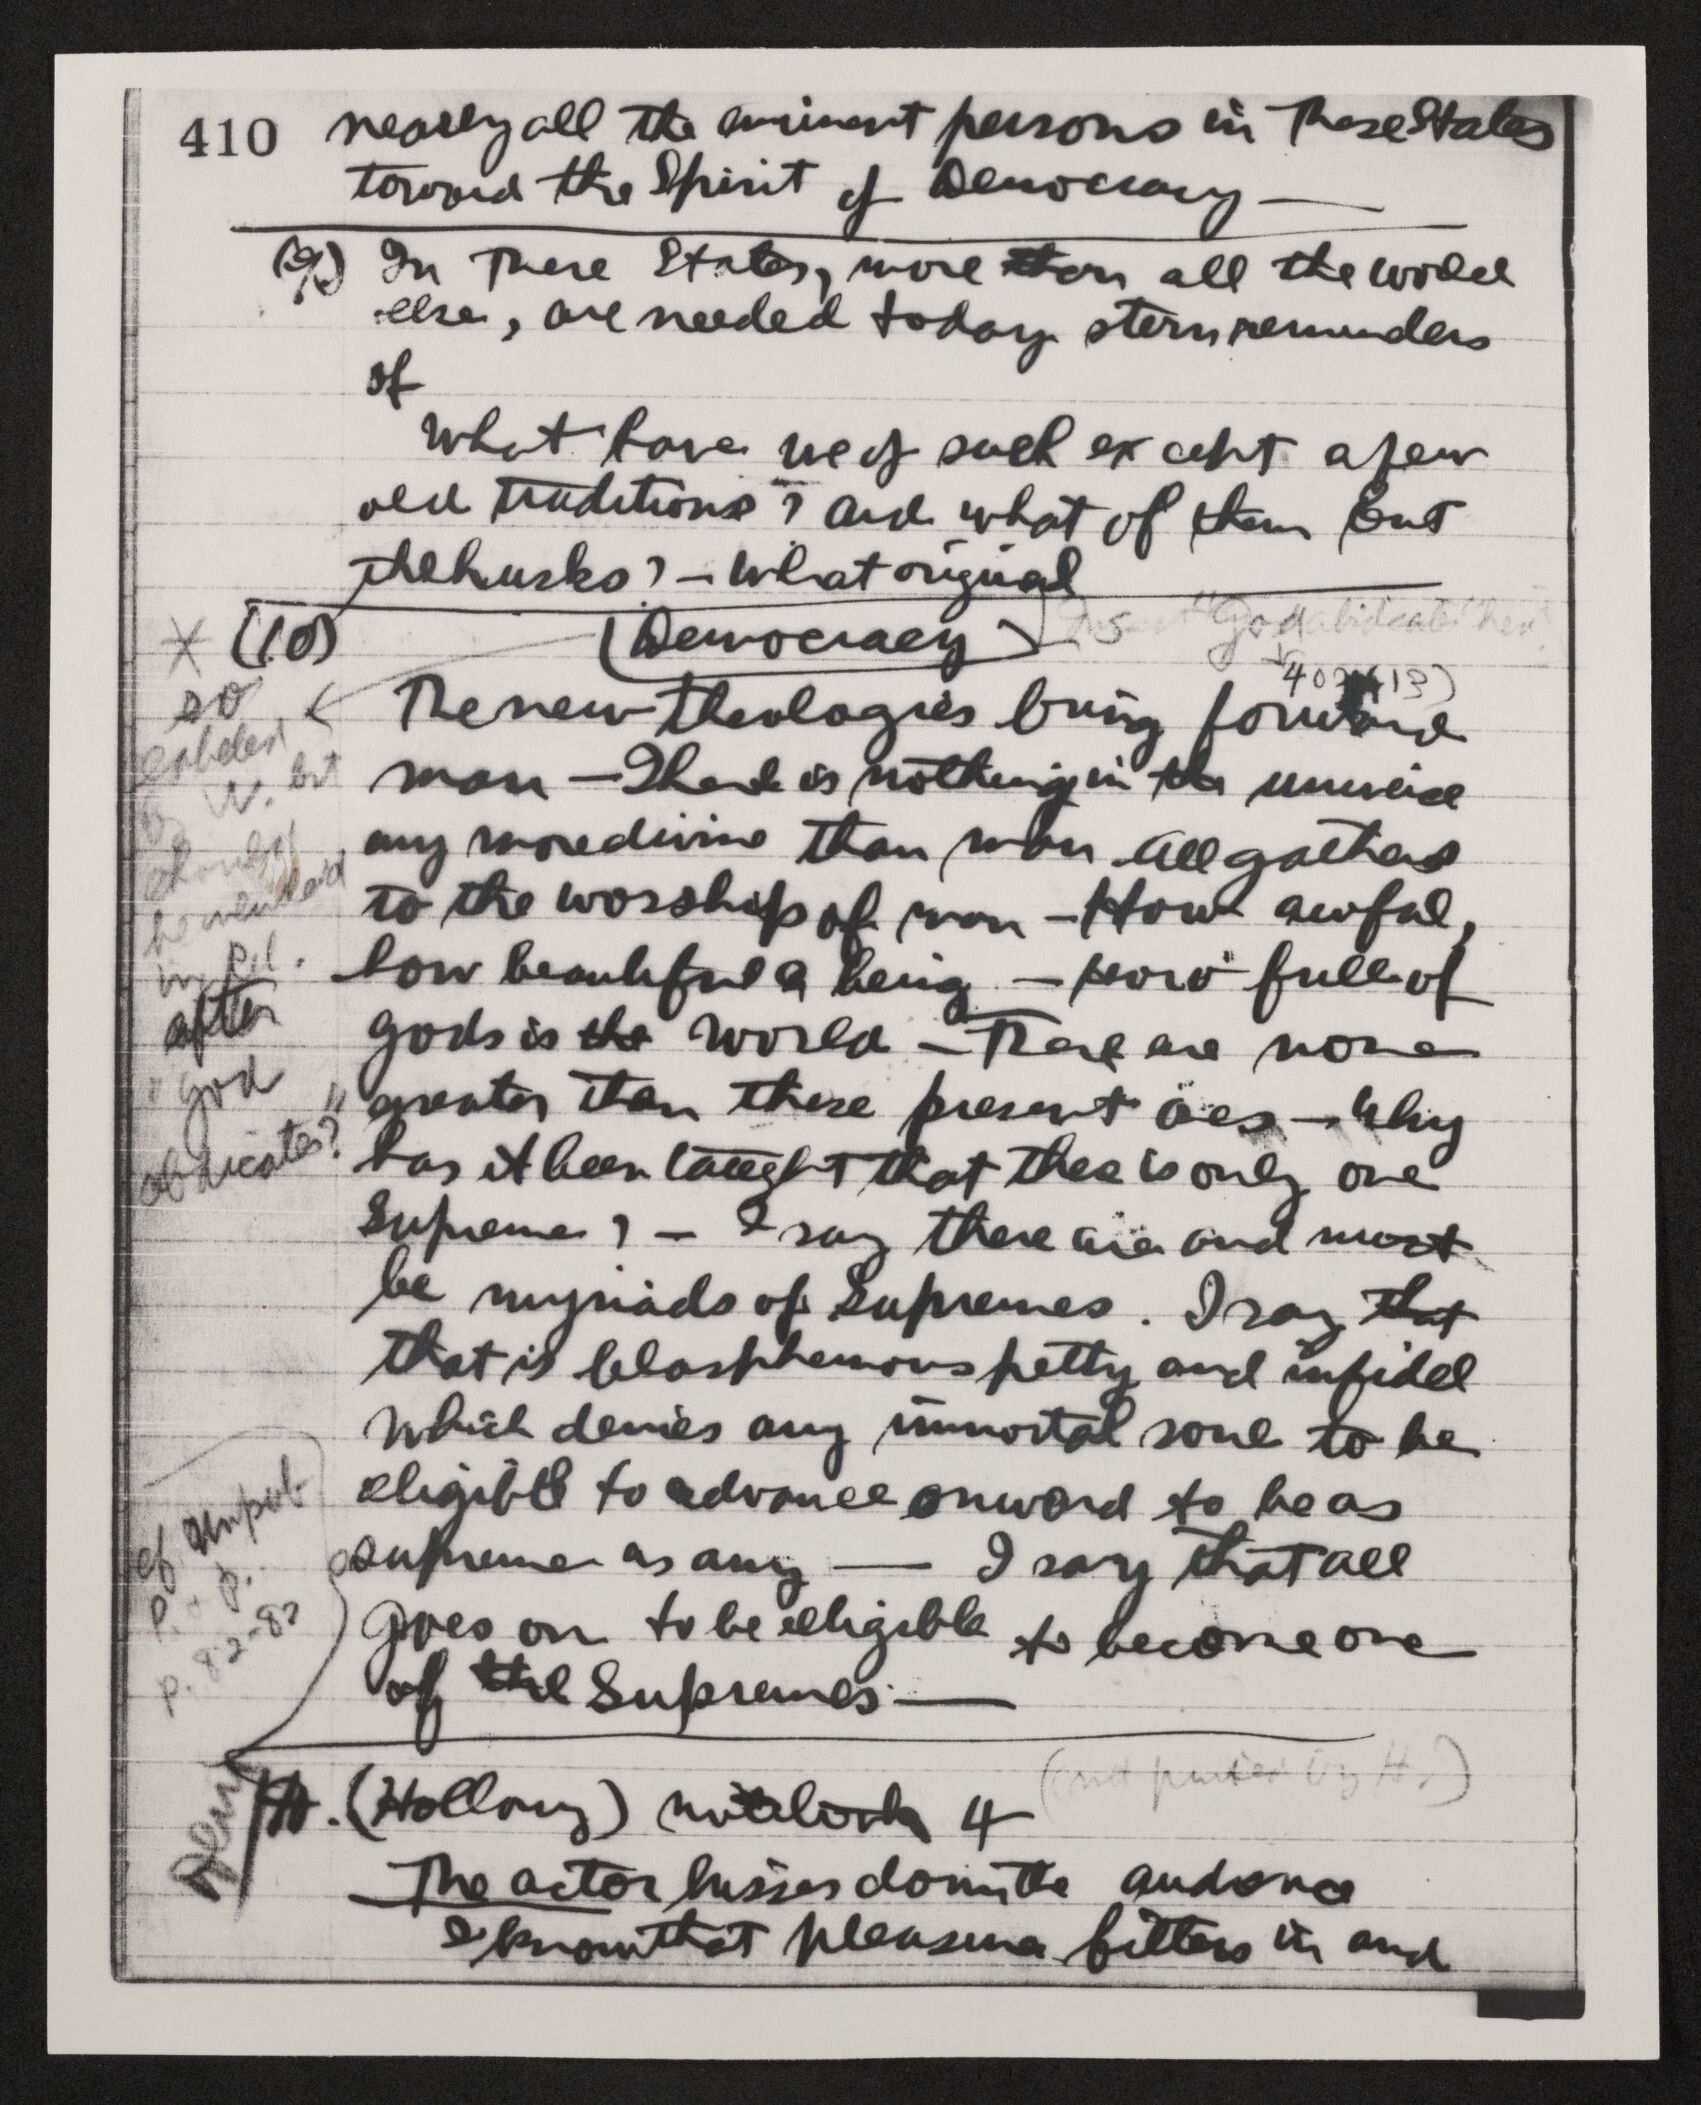 410 nearly all the eminent persons in These States
toward the Spirit of Democracy —
(9) In These States, more than all the world
else, are needed today stern reminders
of
What have we of such except a few
old traditions? and what of them but
the husks? — What original
* (10) (Democracy) Insert "God abdicates" here
409 (13)
so
labeled
by W. but
should
be included
in P. 1.
after
"God
abdicates"?
The new theologies bring forward
man — There is nothing in the universe
any more divine than man. All gathers
to the worship of man — How awful,
how beautiful a being — How full of
gods is the world — There are none
greater than these present ones — Why
has it been taught that there is only one
Supreme? — I say there are and must
be myriads of Supremes. I say that
that is blasphemous petty and infidel
which denies any immortal soul to be
eligible to advance onward to be as
supreme as any — I say that all
goes on to be elligible to become one
of the Supremes —
cf Unpub.
P. & P.
p. 82-83
H. (Holloway) notebook 4 (not printed by H.)
The actor hisses down the audence
I know that pleasure filters in and